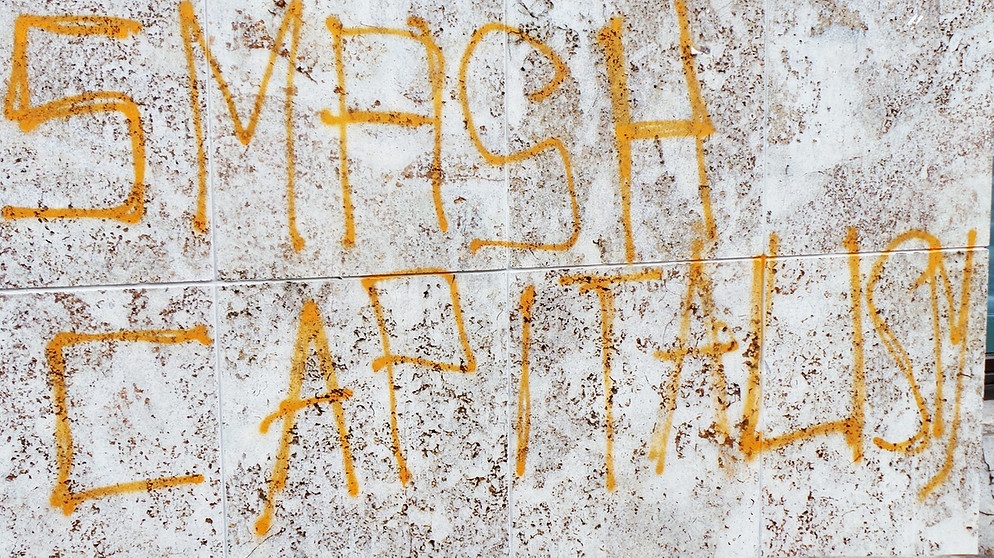 SMASH
CAPITALISM